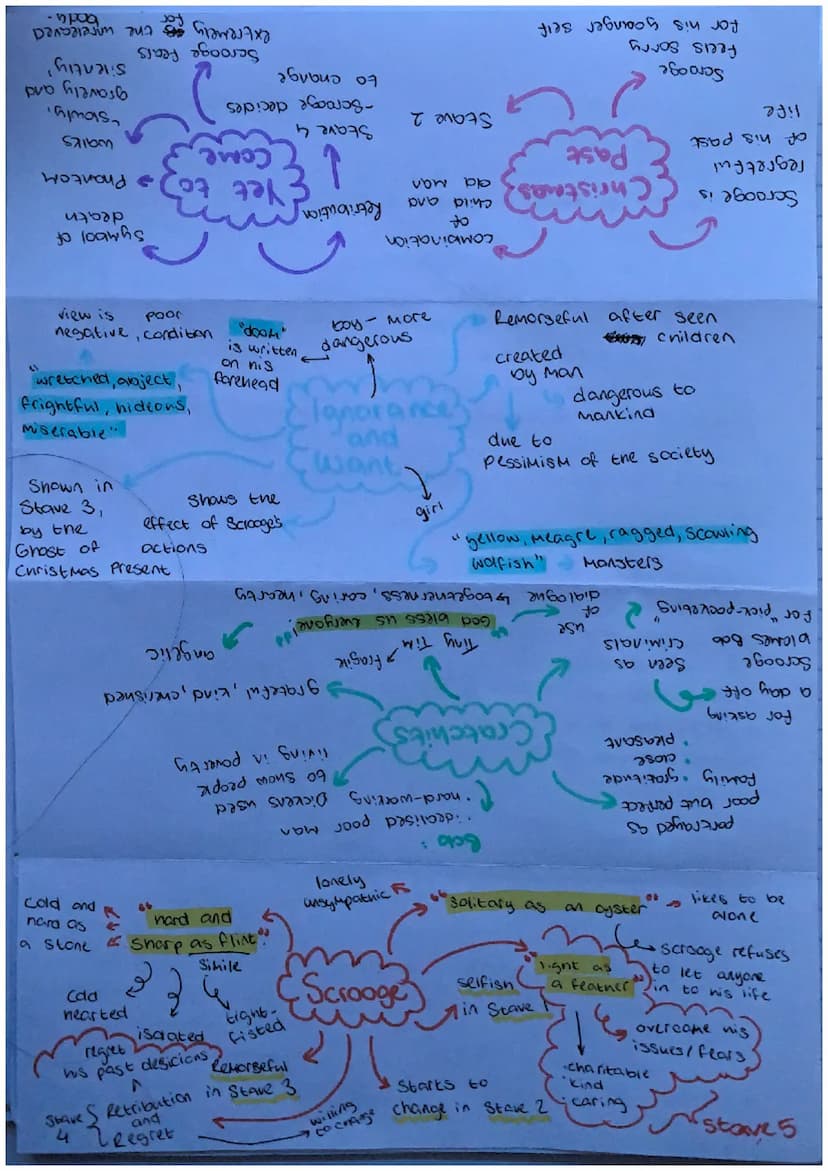 Yet to
come
Symbol of
death
Phantom
walks
"slowly,
gravely and
silently"
Scrooge feels
extremely
for the unrelieved
body
Stave 4
- Scrooge decides
to change
Retribution
Christmas
Past
combination
of
child and
old man
Stave 2
Scrooge
feels sorry
for his younger self
Scrooge is
regretful
of his past
life
Ignorance
and
Want
view is
negative,
poor
condition
"doom"
is written
on his
forehead
boy - more
dangerous
Remorseful after seen
children
created
by man
dangerous to
mankind
due to
pessimism of the society
"wretched, abject,
frightful, hideous,
miserable"
Shown in
Stave 3,
by the
Ghost of
Christmas Present
shows the
effect of Scrooge's
actions
girl
"yellow, meagre, ragged, scowling
wolfish"
Monsters
Cratchits
Bob:
. idealised poor man
. hard-working
Dickens used
to show people
living in poverty
grateful, kind, cherished
Tiny Tim
Fragile
angelic
"God bless us everyone!"
use
of
dialogue
togetherness, caring, hearty
seen as
criminals
Scrooge
blames Bob
for "pick-pocketing"
for asking
a day off
portrayed as
poor but perfect
family
. gratitude
. close
. pleasant
Scrooge
"hard and
sharp as flint"
Simile
cold and
hard as
a stone
cold
hearted
isolated
tight-
fisted
lonely
unsympathic
"solitary as an oyster"
likes to be
alone
Scrooge refuses
to let anyone
in to his life
selfish
in Stave 1
"light as
a feather"
overcome his
issues/fears
. charitable
. kind
. caring
Stave 5
starts to
change in Stave 2
Remorseful
in Stave 3
regret
his past desicions
Stave
4
Retribution
and
Regret
willing
to change